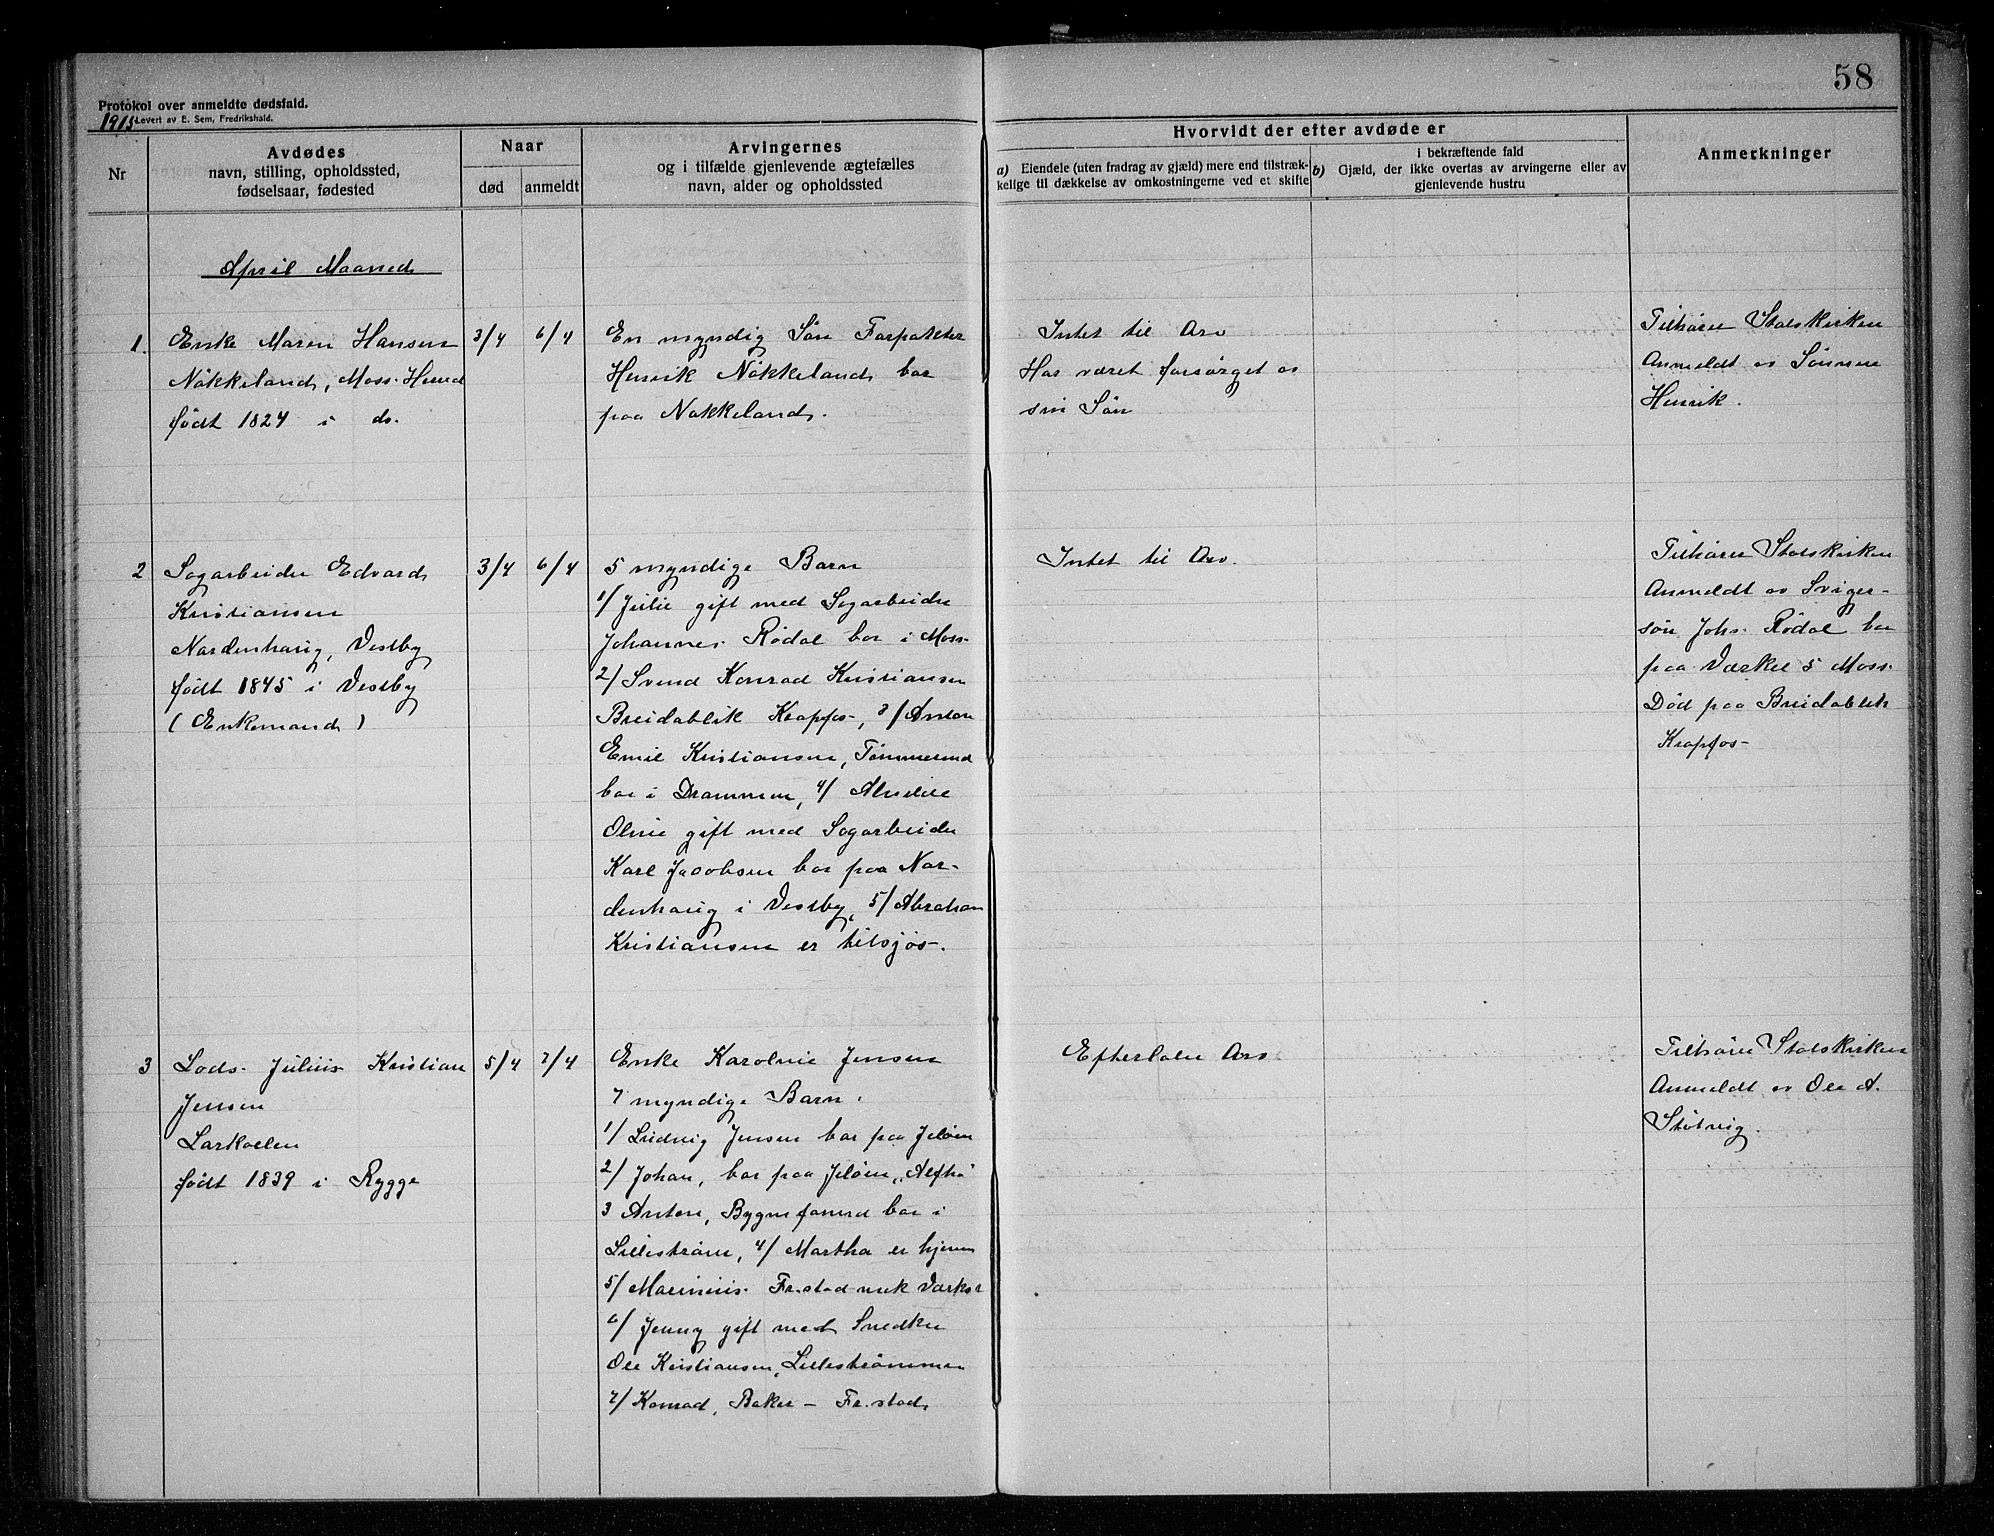 58
Protokol over anmeldte dødsfald.
1915
Levert av E. Sem, Fredrikshald.
Nr
Avdødes
navn, stilling, opholdssted,
fødselsaar, fødested
Naar
død
anmeldt
Arvingernes
og i tilfælde gjenlevende ægtefælles
navn, alder og opholdssted
Hvorvidt der efter avdøde er
a) Eiendele (uten fradrag av gjæld) mere end tilstræk-
kelige til dækkelse av omkostningerne ved et skifte
i bekræftende fald
b) Gjæld, der ikke overtas av arvingerne eller av
gjenlevende hustru
Anmerkninger
April Maaned
1.
Enke Maren Hansen
Nökkeland, Moss. Herred
født 1824 i do.
3/4
6/4
En myndig Søn Forpakter
Henrik Nökkeland, bor
paa Nökkeland.
Intet til Arv
Har været forsørget av
sin Søn
Tilhører Statskirken
Anmeldt av Sønnen
Henrik.
2
Sagarbeider Edvard
Kristiansen
Nordenhaug, Vestby
født 1845 i Vestby
(Enkemand)
3/4
6/4
5 myndige Barn
1/ Julie gift med Sagarbeider
Johannes Rødal bor i Moss.
2/ Svend Konrad Kristiansen
Breidablik Krapfos, 3/ Anton
Emil Kristiansen, Tømmermd
bor i Drammen, 4/
Oline gift med Sagarbeider
Karl Jacobsen bor paa Nor-
denhaug i Vestby, 5/ Abraham
Kristiansen er tilsjøs.
Intet til Arv.
Tilhører Statskirken
Anmeldt av Sviger-
søn Johs. Rødal bor
paa Værket 5 Moss.
Død paa Breidablik
Krapfos
3
Lods Julius Kristian
Jensen
Larkollen
født 1839 i Rygge
5/4
7/4
Enke Karoline Jensen
7 myndige Barn.
1/ Ludvig Jensen bor paa Jeløen
2/ Johan, bor paa Jeløen, „Alfhø"
3 Anton, Bygn.formd bor i
Lillestrøm, 4/ Martha er hjemme
5/ Marinius Fr.stad mek Værkst
6/ Jenny gift med Snedker
Ole Kristiansen, Lillestrømmen
7/ Konrad, Baker – Fr.stad
Efterlater Arv
Tilhører Statskirken
Anmeldt av Ole A.
Støtvig.